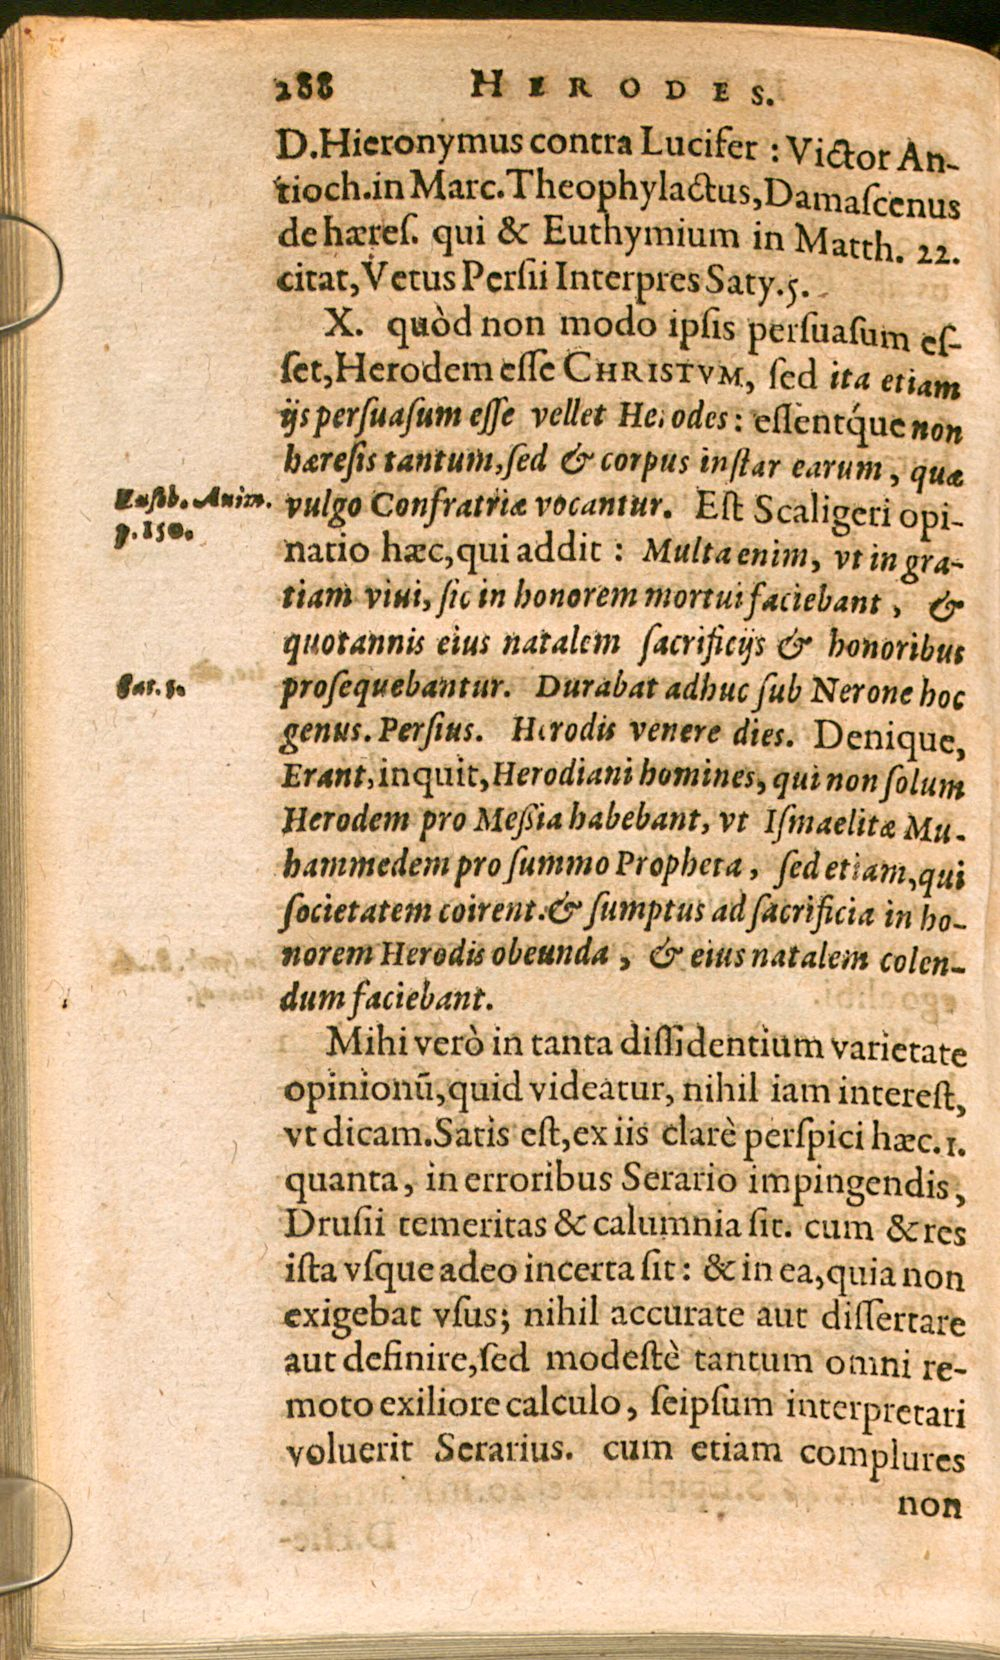 288 HERODES.
D. Hieronymus contra Lucifer : Victor An-
tioch. in Marc. Theophylactus, Damaſcenus
de hæreſ. qui & Euthymium in Matth. 22.
citat, Vetus Perſii Interpres Saty. 5.
X. quòd non modo ipſis perſuaſum eſ-
ſet, Herodem eſſe CHRISTVM, ſed ita etiam
ijs perſuaſum eſſe vellet Herodes : eſſentq́ue non
hæreſis tantum, ſed & corpus inſtar earum, quæ
Euſeb. Anim. vulgo Confratriæ vocantur. Eſt Scaligeri opi-
p. 150. natio hæc, qui addit : Multa enim, vt in gra-
tiam viui, ſic in honorem mortui faciebant, &
quotannis eius natalem ſacrificijs & honoribus
Sat. 5. proſequebantur. Durabat adhuc ſub Nerone hoc
genus. Perſius. Herodis venere dies. Denique,
Erant, inquit, Herodiani homines, qui non ſolum
Herodem pro Meßia habebant, vt Iſmaelitæ Mu-
hammedem pro ſummo Propheta, ſed etiam, qui
ſocietatem coirent. & ſumptus ad ſacrificia in ho-
norem Herodis obeunda, & eius natalem colen-
dum faciebant.
Mihi verò in tanta diſſidentium varietate
opinionū, quid videatur, nihil iam intereſt,
vt dicam. Satis eſt, ex iis clarè perſpici hæc. 1.
quanta, in erroribus Serario impingendis,
Druſii temeritas & calumnia ſit. cum & res
iſta vſque adeo incerta ſit : & in ea, quia non
exigebat vſus; nihil accurate aut diſſertare
aut definire, ſed modeſtè tantum omni re-
moto exiliore calculo, ſeipſum interpretari
voluerit Serarius. cum etiam complures
non